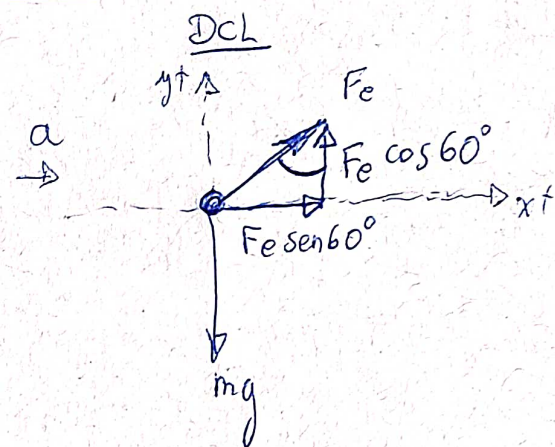 DCL
y+
Fe
a
Fe cos 60°
x+
Fe sen 60°
mg